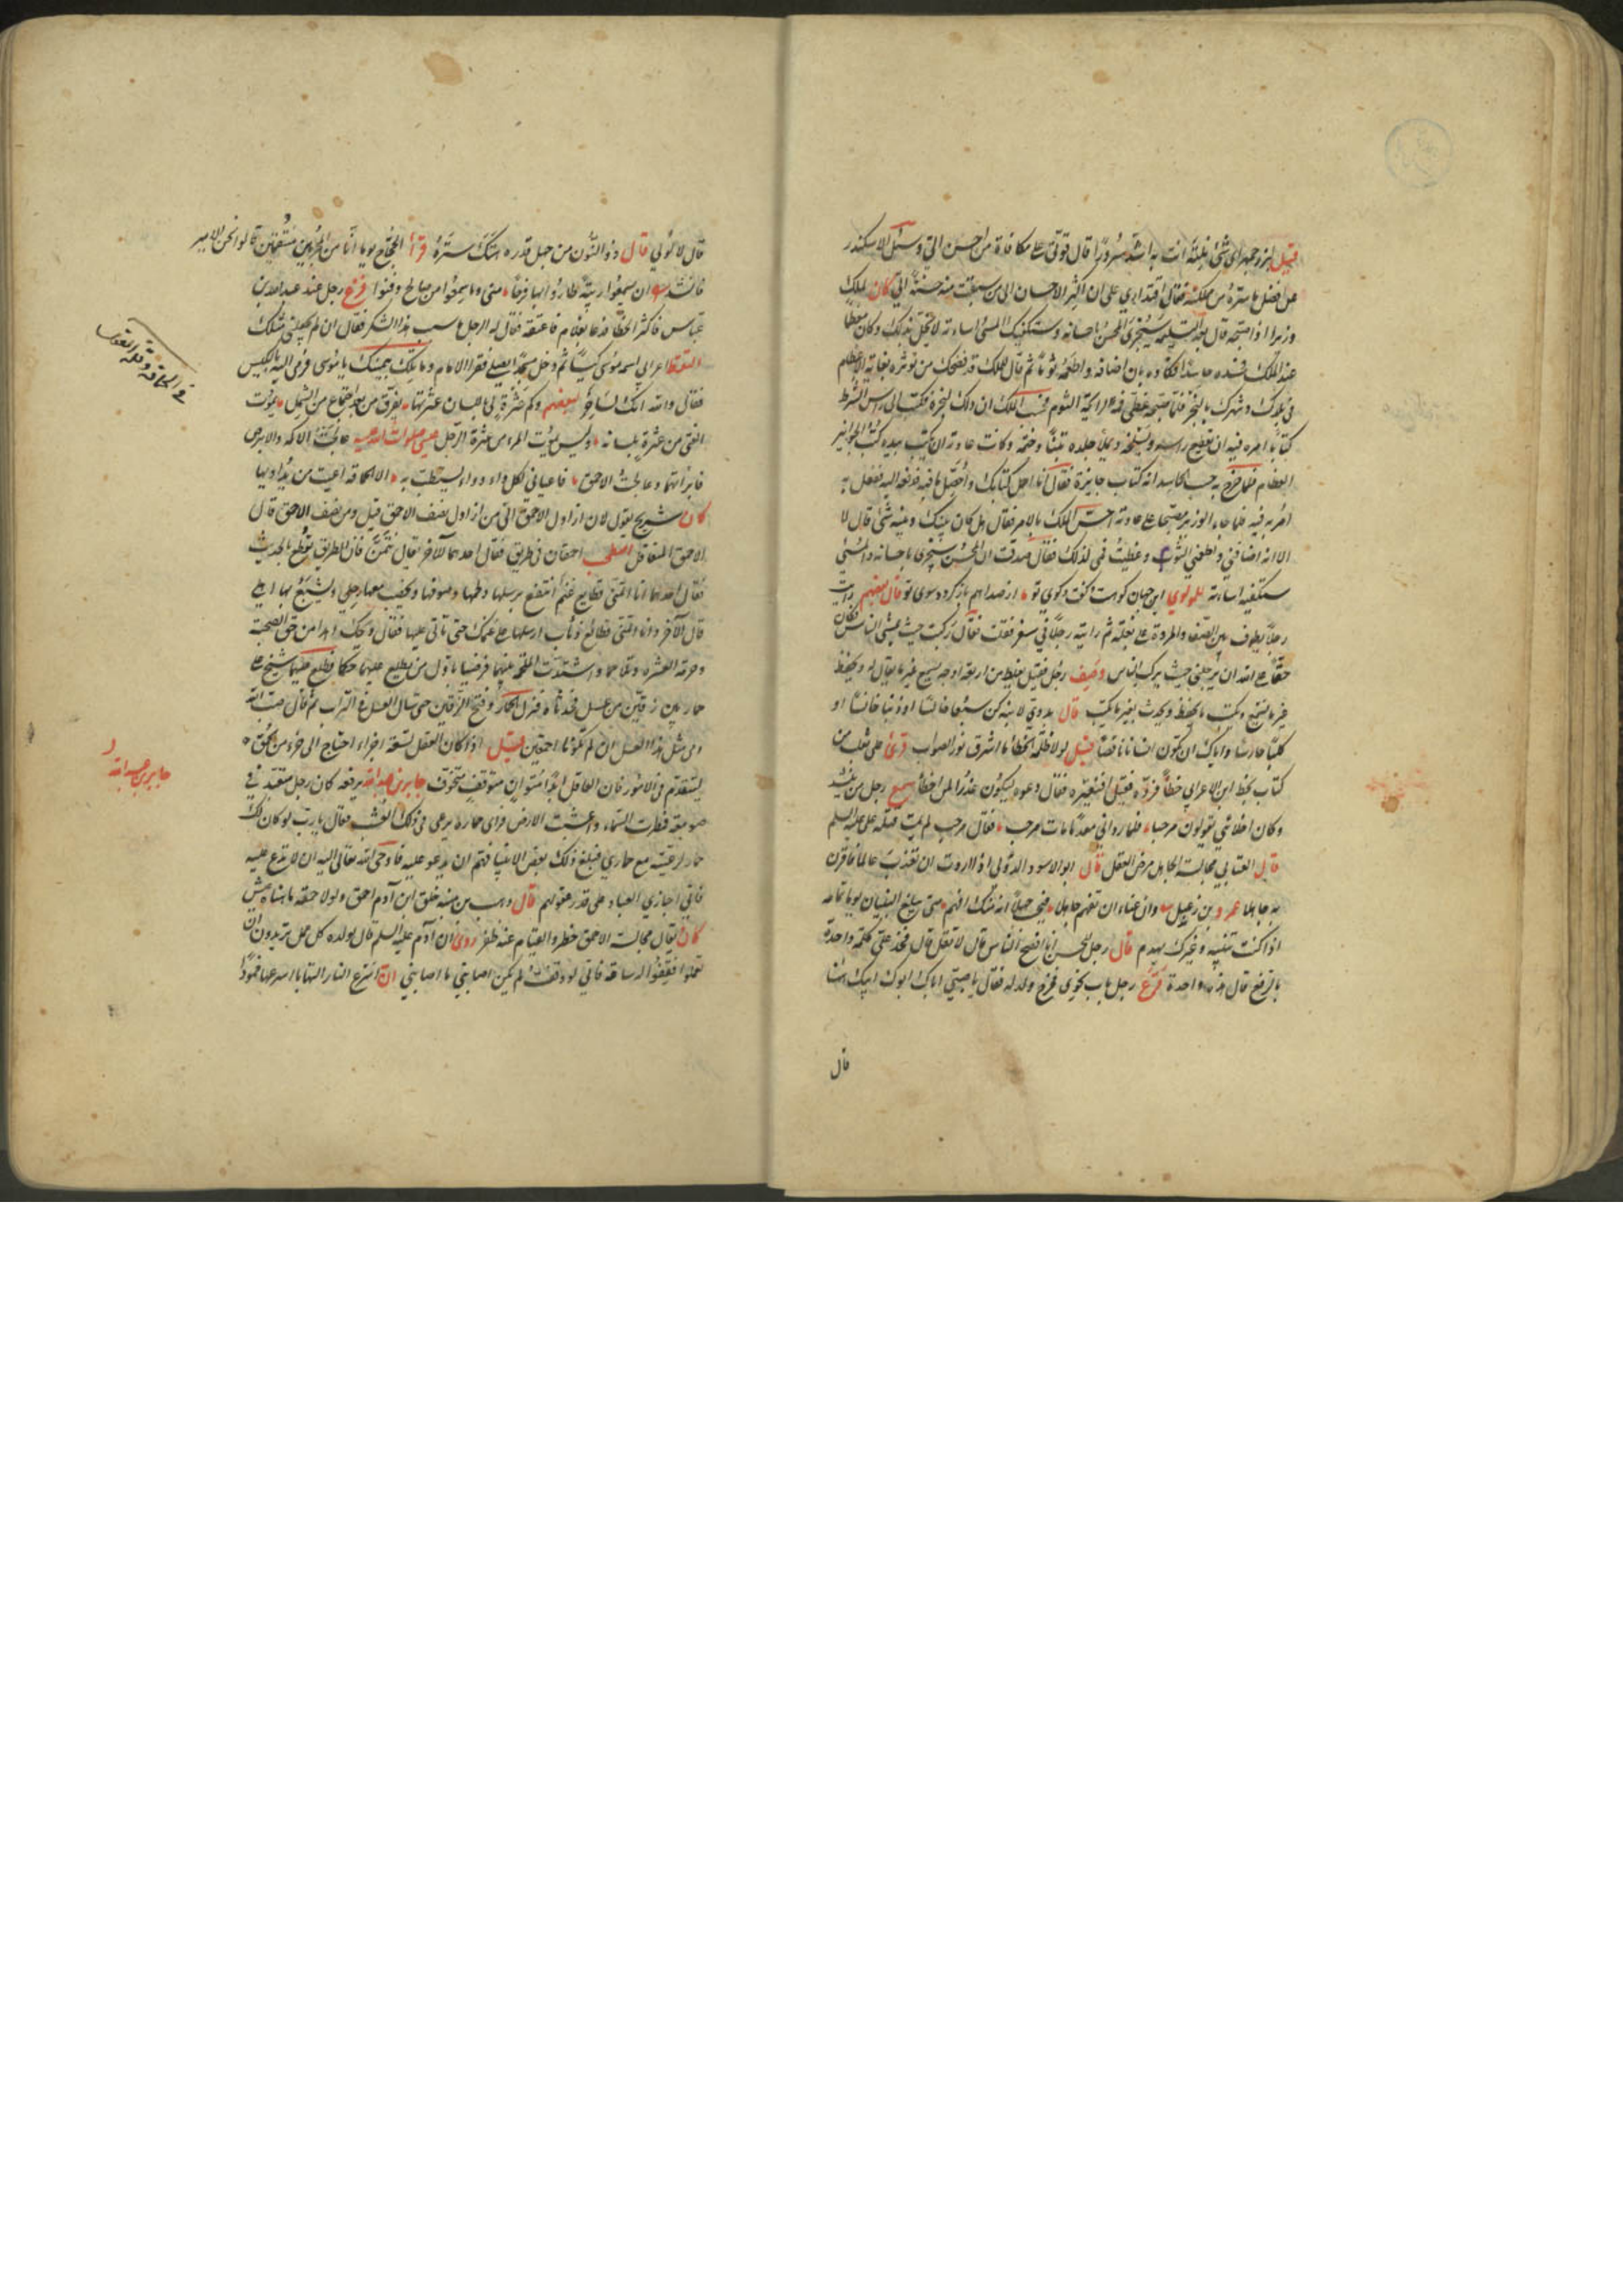 قيل لبزرجمهر اي شئ نلته انت به اشد سرورا قال قوتي على مكافاة من احسن الي وسئل الاسكندر
عن افضل ما سره من مملكته فقال اقتداري على ان اكثر الاحسان الى من سبقت منه حسنة الي كان لملك
وزيرا اذا صبحه قال بعد التسليم سيجزى المحسن باحسانه وستكفيك المسئ اساءته لا يخل بذلك وكان معظما
عند الملك فحسده حاسد فكاده بان اضافه واطعمه ثوما ثم قال للملك
في بلدك وشهرك بالبخر فلما صبحه غطى فمه لرائحة الثوم فحسب الملك ان ذلك لبخره فكتب الى رئيس الشرط
كتابا امره فيه ان يقطع راسه ويسلخه ويملأ جلده تبنا وختمه وكانت عادته ان يكتب بيده كتب الجوائز
العظام فلما خرج به حسب الحاسد انه كتاب جايزة فقال انا احمل كتابك واحصل ما فيه فدفعه اليه ففعل به
امر به فيه فلما جاء الوزير مصبحا على عادته احس الملك بالامر فقال هل كان بينك وبينه شئ قال لا
الا انه اضافني واطعمني الثوم وغطيت فمي لذلك فقال صدقت ان المحسن سيجزى باحسانه والمسئ
ستكفيه اساءته للمولوي اين جهان كوهست وكفت وكوى تو از صداهم باز كردد سوى تو قال بعضهم رايت
رجلا يطوف بين الصفا والمروة على بغلة ثم رايته راجلا في سفر فقلت فقال ركبت حيث يمشي الناس فكان
حقا على الله ان يرجلني حيث يركب الناس وصف رجل فقيل يغلط من اربعة اوجه يسمع غير ما يقال له ويحفظ
غير ما يسمع ويكتب غير ما يحفظ ويحدث بغير ما يكتب قال بدوي لابنه كن سبعا خالسا او ذئبا خانسا او
كلبا حارسا واياك ان تكون انسانا ناقصا قيل لولا ظلمة الخطأ ما اشرق نور الصواب قرئ على ثعلب من
كتاب بخط ابن الاعرابي خطأ فرده فقيل افنغيره فقال دعوه ليكون عذرا لمن اخطأ سمع رجل من ينشد
وكان اخلائي يقولون مرحبا فلما راوني معدما مات مرحب فقال مرحب لم يمت قتله علي عليه السلم
قال العتابي مجالسة الجاهل مرض العقل قال ابو الاسود الدؤلي اذا اردت ان تعذب عالما فاقرن
به جاهلا عمرو بن زعبل وان عناء ان تفهم جاهلا فيحسب جهلا انه منك افهم متى يبلغ البنيان يوما تمامه
اذا كنت تبنيه وغيرك يهدم قال رجل للحسن انا افصح الناس قال لا تقل قال فخذ علي كلمة واحدة
بالرفع قال هذه واحدة قرع رجل باب نحوي فخرج ولد له فقال يا صبي اباك ابوك ابيك ههنا
قال
قال لا لو لي قال ذو النون من جهل قدره هتك ستره قرأ الحجاج يوما انا من المجرمين منتقمون
فانشد ان يسمعوا ريبة طاروا بها فرحا مني وما سمعوا من صالح دفنوا فزع رجل عند عبد الله بن
عباس فاكثر الخطأ فدعا بغلام فاعتقه فقال له الرجل ما سبب هذا الشكر فقال ان لم يجعلني مثلك
التقط اعرابي اسمه موسى كيسا ثم دخل مسجدا ليصلي فقرا الامام وما تلك بيمينك يا موسى فرمى اليه بالكيس
فقال والله انك لساحر بعضهم وكم عثرة لي باللسان عثرتها يفرق من بعد اجتماع من الشمل يموت
الفتى من عثرة بلسانه وليس يموت المرء من عثرة الرجل عيسى صلوات الله عليه عالجت الاكمه والابرص
فابرأتهما وعالجت الاحمق فاعياني لكل داء دواء يستطب به الا الحماقة اعيت من يداويها
كان شريح يقول لان ازاول الاحمق احب الي من ازاول نصف الاحمق قيل ومن نصف الاحمق قال
الاحمق المتعاقل اصطحب احمقان في طريق فقال احدهما للآخر تعال نتمن فان الطريق يقطع بالحديث
فقال احدهما انا اتمنى قطايع غنم انتفع برسلها ولحمها وصوفها ويخصب معها رحلي ويشبع بها اهلي
قال الآخر وانا اتمنى قطائع ذئاب ارسلها على غنمك حتى تاتي عليها فقال ويحك اهذا من حق الصحبة
وحرمة العشرة وتلاحما واشتدت الملحمة بينهما فرضيا باول من يطلع عليهما حكما فطلع عليهما شيخ على
حمار بين زقين من عسل فحدثاه فنزل عن الحمار وفتح الزقين حتى سال العسل في التراب ثم قال صب الله
دمي مثل هذا العسل ان لم تكونا احمقين قيل اذا كان العقل تسعة اجزاء احتاج الى جزء من الحمق
ليتقدم في الامور فان العاقل ابدا متوان متوقف متخوف جابر بن عبد الله يرفعه كان رجل متعبد في
صومعة فمطرت السماء واعشبت الارض فراى حماره يرعى في ذلك العشب فقال يا رب لو كان لك
حمار لرعيته مع حماري فبلغ ذلك بعض الانبياء فهم ان يدعو عليه فاوحى الله تعالى اليه ان لا تدع عليه
فاني اجازي العباد على قدر عقولهم قال وهب بن منبه خلق ابن آدم احمق ولولا حمقه ما هناه عيش
كان يقال مجالسة الاحمق خطر والقيام عنه ظفر روي ان آدم عليه السلم قال لولده كل عمل تريدون ان
تعملوا فقفوا له ساعة فاني لو وقفت لم يكن اصابني ما اصابني ان اسرع النار التهابا اسرعها خمودا
جابر بن عبد الله